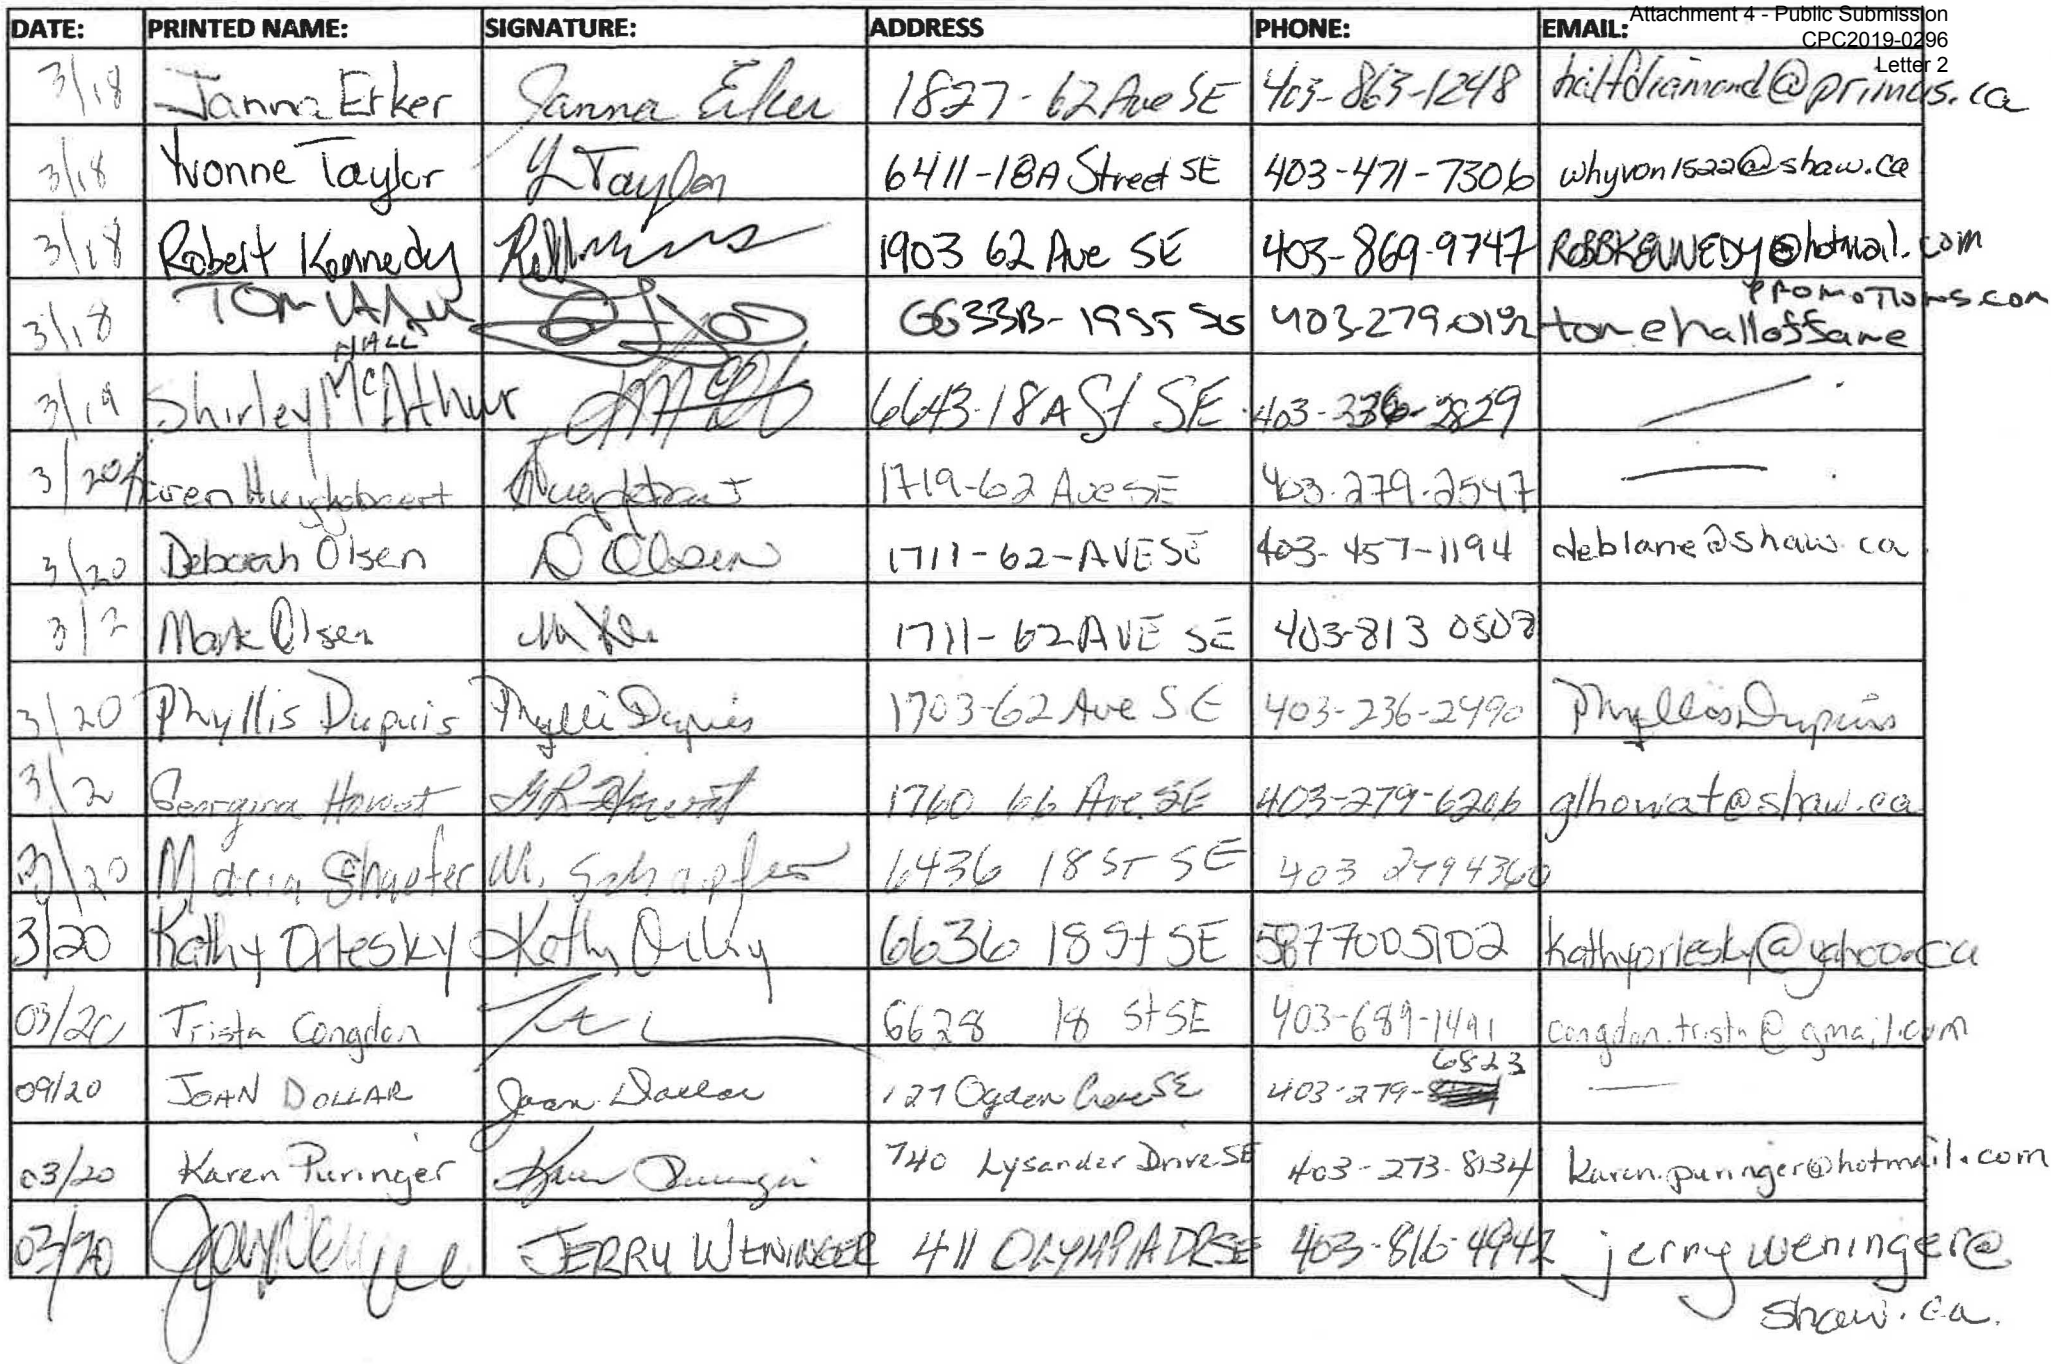 Attachment 4 - Public Submission
CPC2019-0296
Letter 2
DATE: PRINTED NAME: SIGNATURE: ADDRESS PHONE: EMAIL:
3/18 Janna Erker Janna Erker 1827-62 Ave SE 403-863-1248 halfdiamond@primus.ca
3/18 Yvonne Taylor Y Taylor 6411-18A Street SE 403-471-7306 whyvon1522@shaw.ca
3/18 Robert Kennedy 1903 62 Ave SE 403-869-9747 ROBBKENNEDY@hotmail.com
3/18 TOM HALL 6633B- 403-279-0192 tom@halloffame
PROMOTIONS.COM
3/19 Shirley McArthur 6643-18A St SE 403-236-2829
3/20 Karen Huyghebaert 1719-62 Ave SE 403-279-2547
3/20 Deborah Olsen D Olsen 1711-62-AVE SE 403-457-1194 deblane@shaw.ca
3/2 Mark Olsen 1711-62 AVE SE 403-813 0508
3/20 Phyllis Dupuis Phyllis Dupuis 1703-62 Ave SE 403-236-2490 Phyllis Dupuis
3/2 Georgina Howat GR Howat 1760 66 Ave. SE 403-279-6206 glhowat@shaw.ca
3/20 Marcia Shaefer M. Schaefer 6436 18 ST SE 403 2794360
3/20 Kathy Orlesky 6636 18 St SE 5877005102 kathyorlesky@yahoo.ca
03/20 Trista Congdon 6628 18 St SE 403-689-1491 congdon.trista@gmail.com
09/20 JOAN DOLLAR Joan Dollar 127 Ogden Cres SE 403-279-6823
03/20 Karen Puringer Karen Puringer 740 Lysander Drive SE 403-273-8134 karen.puringer@hotmail.com
03/20 JERRY WENINGER 411 OLYMPIA DR SE 403-816-4942 jerryweninger@
shaw.ca.